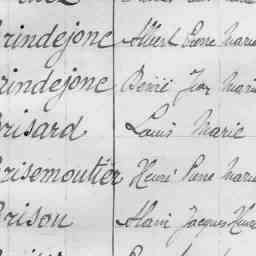 rindejonc Albert Pierre Marie
rindejonc René Jean Marie
risard Louis Marie
risemoutier Henri Pierre Marie
rison Alain Jacques Henri